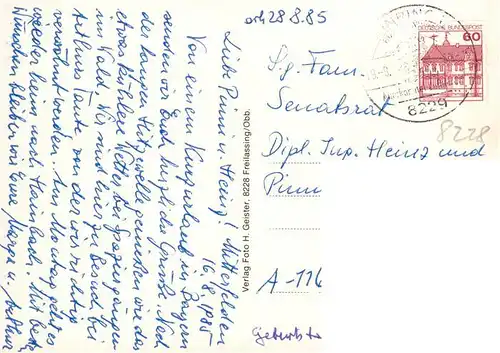 och 28.8.85
Liebe Pinni u. Heinz! Mitterfelden
16.8.1985
Von einem Kurzurlaub in Bayern
senden wir Euch herzliche Grüße. Nach
der langen Hitzewelle genießen wir das
etwas kühlere Wetter bei Spaziergängen
im Wald. Wir sind hier zu Besuch bei
Arthurs Tante von der wir richtig
verwöhnt werden. Am Montag geht es
wieder heim nach Hainbach. Mit besten
Wünschen bleiben wir Eure Marga u. Arthur
Verlag Foto H. Geister, 8228 Freilassing/Obb.
DEUTSCHE BUNDESPOST
60
8229
8228
Sg. Fam.
Senatsrat
Dipl. Ing. Heinz und
Pinni
A-116
Geburts ta